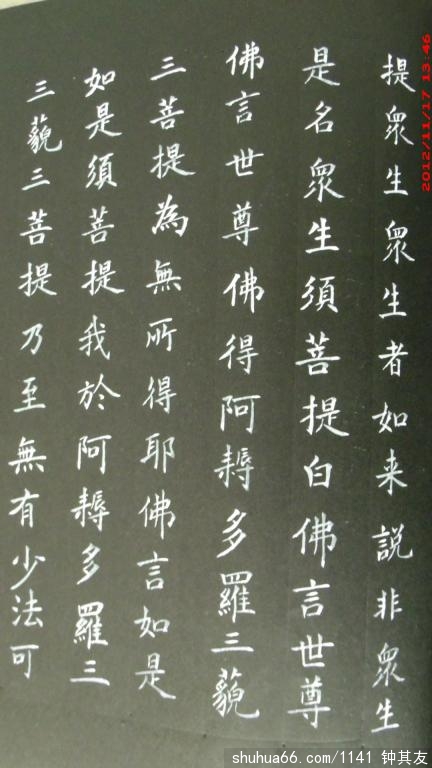 提眾生眾生者如来說非眾生
是名眾生須菩提白佛言世尊
佛言世尊佛得阿耨多羅三藐
三菩提為無所得耶佛言如是
如是須菩提我於阿耨多羅三
三藐三菩提乃至無有少法可
2012/11/17 13:46
shuhua66.com/1141 钟其友